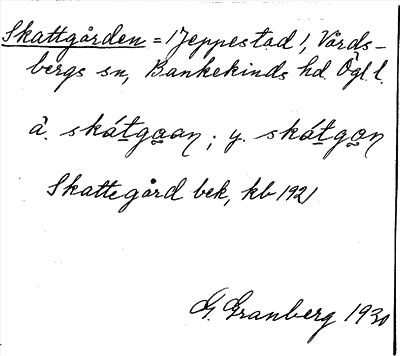 Skattgården = 1 Jeppestad 1, Vårds-
bergs sn, Bankekinds hd. Ögl. l.
ä. skátgaan; y. skátgon
Skattegård bek, kb 1921
G. Granberg 1930